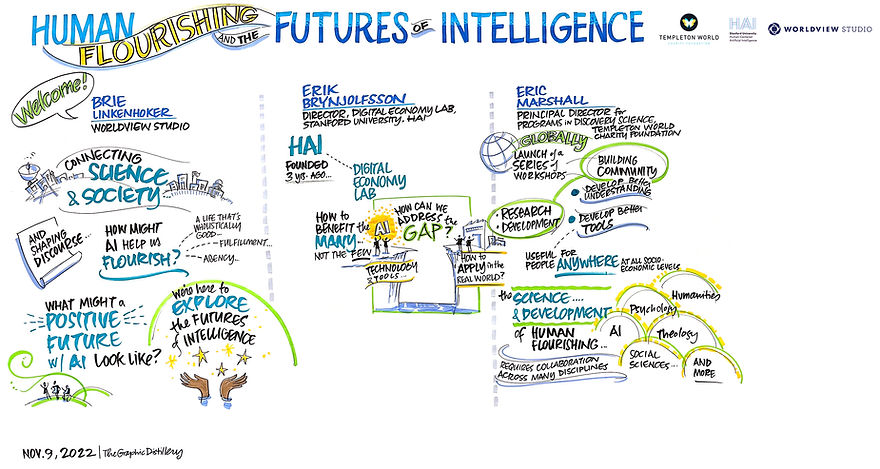 HUMAN
FLOURISHING
AND THE
FUTURES OF INTELLIGENCE
TEMPLETON WORLD
CHARITY FOUNDATION
HAI
Stanford University
Human-Centered
Artificial Intelligence
WORLDVIEW STUDIO
Welcome!
BRIE
LINKENHOKER
WORLDVIEW STUDIO
CONNECTING
SCIENCE
& SOCIETY
AND
SHAPING
DISCOURSE...
HOW MIGHT
AI HELP US
FLOURISH?
A LIFE THAT'S
HOLISTICALLY
GOOD...
FULFILLMENT...
AGENCY...
WHAT MIGHT a
POSITIVE
FUTURE
w/ AI LOOK LIKE?
We're here to
EXPLORE
the FUTURES
of INTELLIGENCE
ERIK
BRYNJOLFSSON
DIRECTOR, DIGITAL ECONOMY LAB,
STANFORD UNIVERSITY. HAI
HAI
FOUNDED
3 YRS. AGO...
DIGITAL
ECONOMY
LAB
HOW to
BENEFIT the
MANY...
NOT THE FEW
AI
HOW CAN WE
ADDRESS the
GAP?
TECHNOLOGY
& TOOLS...
HOW to
APPLY in the
REAL WORLD?
ERIC
MARSHALL
PRINCIPAL DIRECTOR for
PROGRAMS IN DISCOVERY SCIENCE,
TEMPLETON WORLD
CHARITY FOUNDATION
GLOBALLY
LAUNCH of a
SERIES of
WORKSHOPS
BUILDING
COMMUNITY
• RESEARCH
• DEVELOPMENT
• DEVELOP BETTER
UNDERSTANDING
• DEVELOP BETTER
TOOLS
USEFUL FOR
PEOPLE ANYWHERE AT ALL SOCIO-
ECONOMIC LEVELS
the SCIENCE....
& DEVELOPMENT
of HUMAN
FLOURISHING...
REQUIRES COLLABORATION
ACROSS MANY DISCIPLINES
Humanities
Psychology
AI
Theology
SOCIAL
SCIENCES...
AND
MORE
NOV. 9, 2022 | The Graphic Distillery